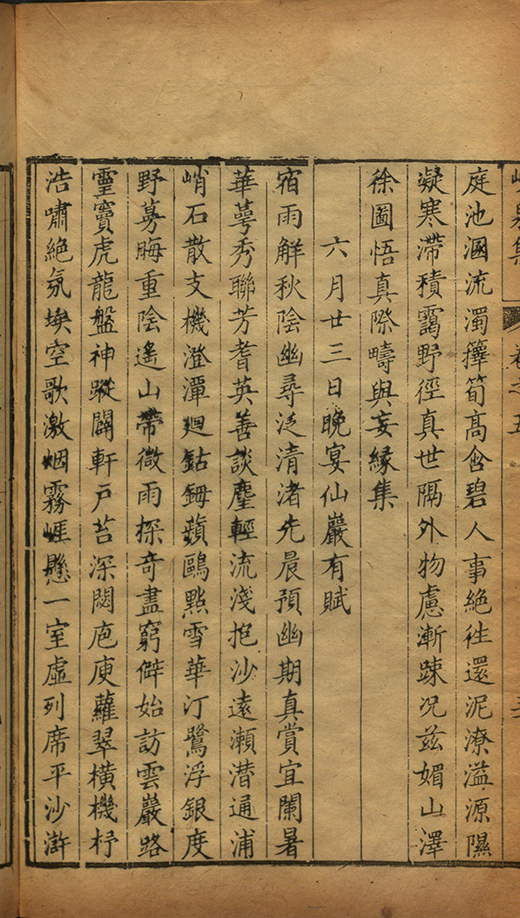 卷之五
庭池溷流濁籜筍髙含碧人事絶徃還泥潦溢源隰
凝寒滯積靄野徑真世隔外物慮漸踈况兹媚山澤
徐圖悟真際疇與妄縁集
六月廿三日晚宴仙巖有賦
宿雨解秋陰幽尋泛清渚先晨預幽期真賞宜闌暑
華萼秀聯芳耆英善談麈輕流淺抱沙遠瀨潜通浦
峭石散支機澄潭廻鈷鉧蘋鷗㸃雪華汀鷺浮銀度
野蒭晦重陰遙山帶微雨探奇盡窮僻始訪雲巖路
靈竇虎龍盤神蹤闢軒戸苔深閟庖庾蘿翠橫機杼
浩嘯絶氛埃空歌激烟霧崕懸一室虛列席平沙滸